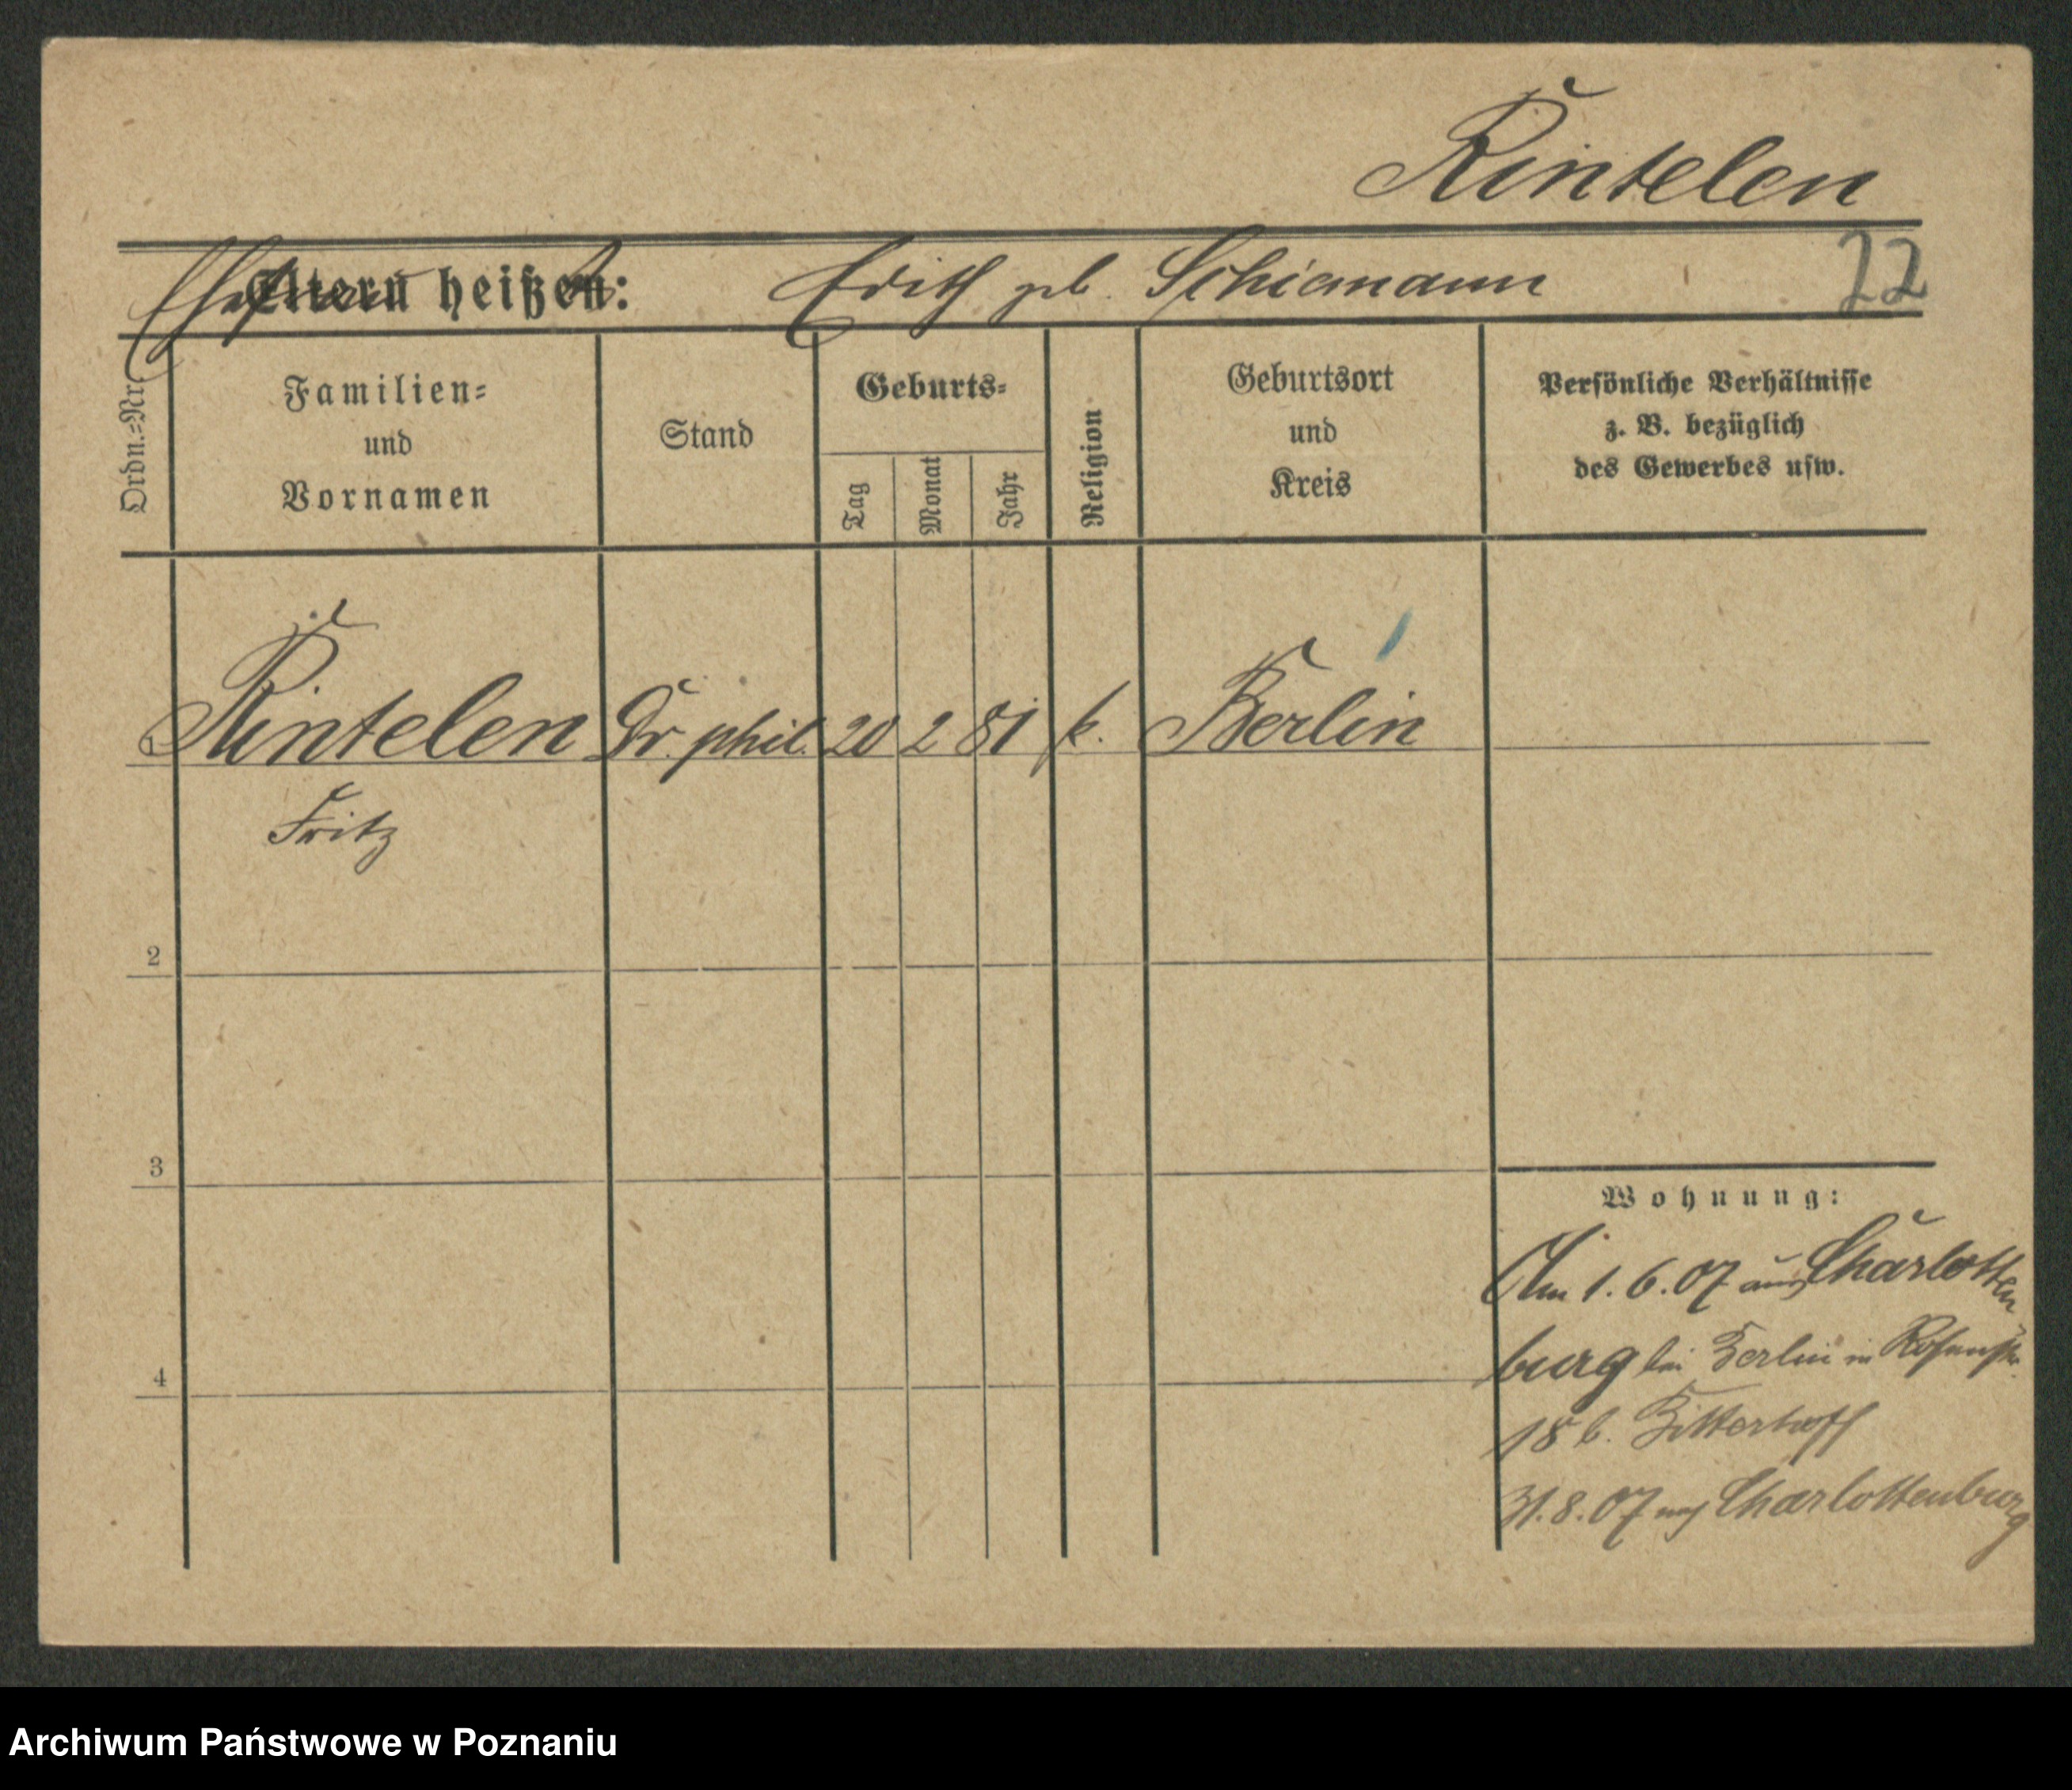 Rintelen
Eltern heißen: Ehefrau Edith geb. Schiemann 22
Ordn.=Nr.
Familien=
und
Vornamen
Stand
Geburts=
Tag
Monat
Jahr
Religion
Geburtsort
und
Kreis
Persönliche Verhältnisse
z. B. bezüglich
des Gewerbes usw.
1 Rintelen Dr. phil. 20 2 81 k. Berlin
Fritz
2
3
Wohnung:
Am 1.6.07 aus Charlotten
burg bei Berlin in
4
18 b. Bitterhoff
31.8.07 nach Charlottenburg
Archiwum Państwowe w Poznaniu